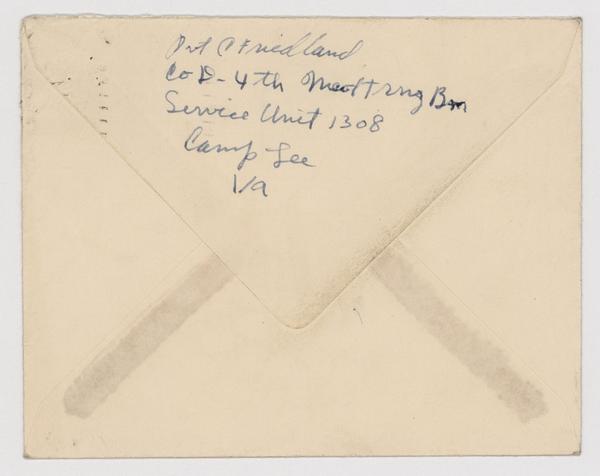 Pvt C Friedland
Co D - 4th Med Trng Bn
Service Unit 1308
Camp Lee
Va